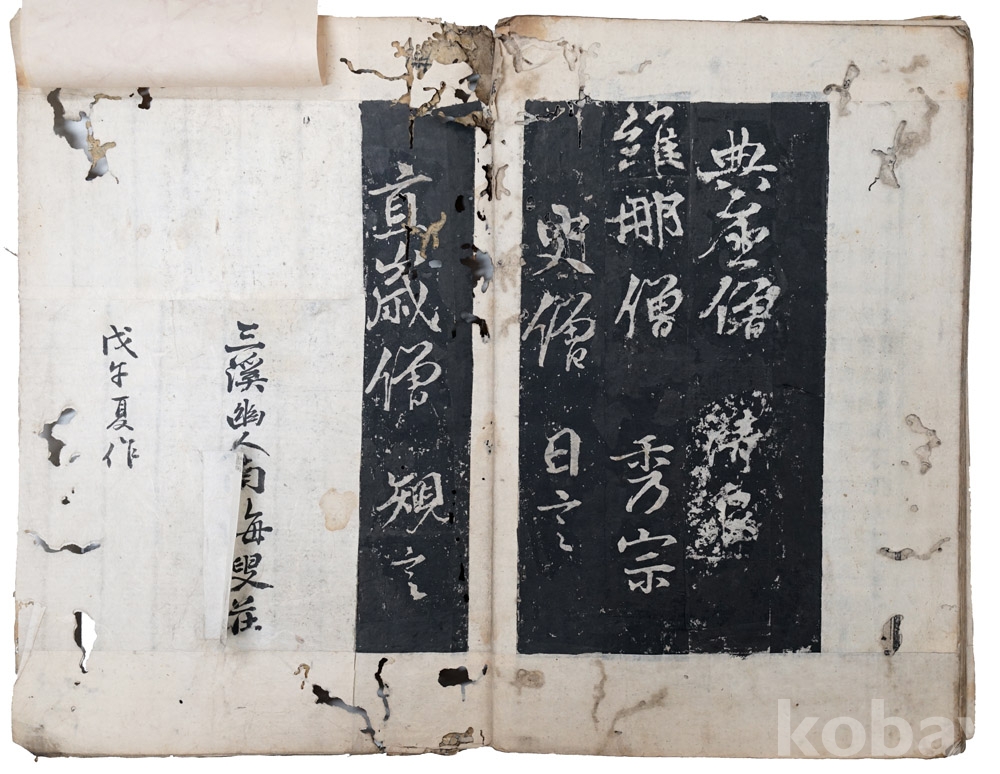 典座僧
維那僧 秀宗
史僧 日玄
直歲僧 規玄
三溪幽人南海叟莊
戊午夏作
koba